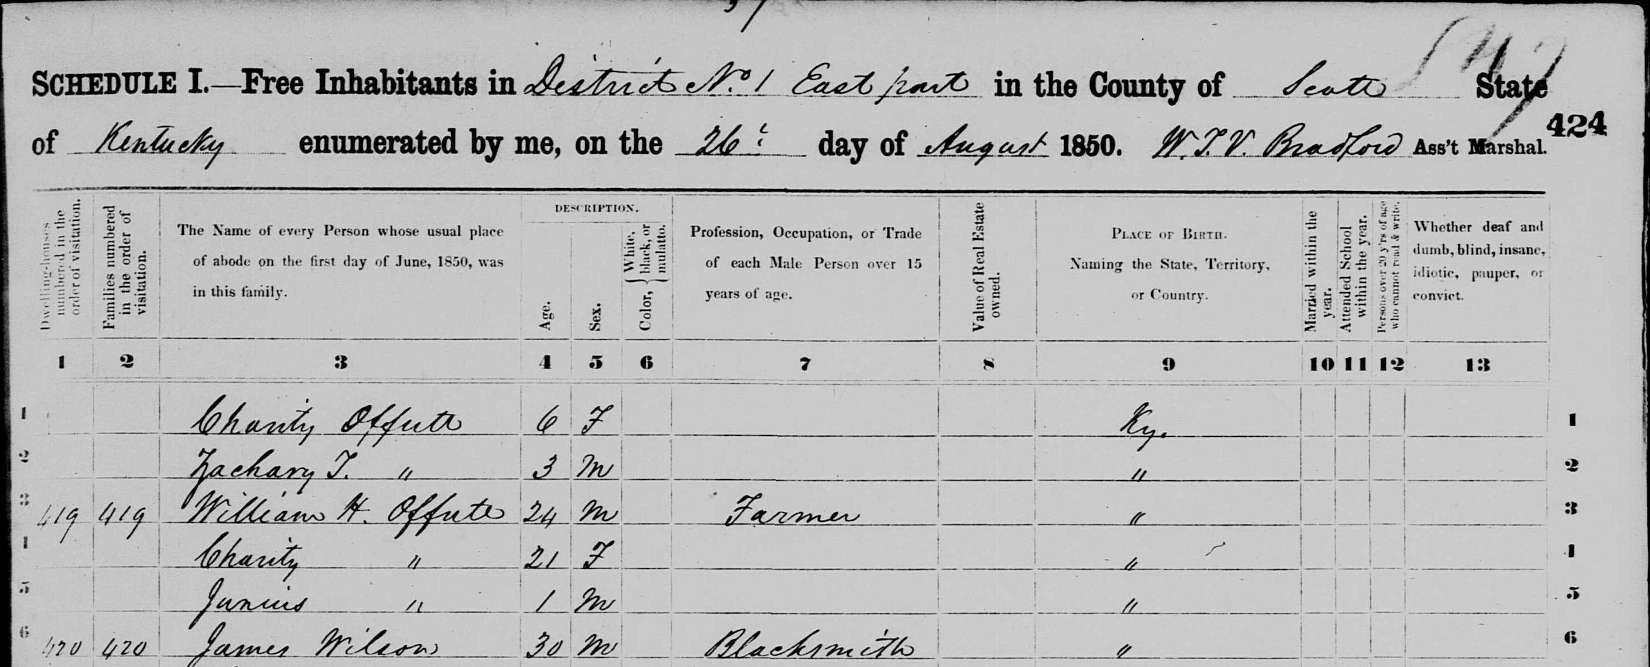 SCHEDULE I.—Free Inhabitants in District No. 1 East part in the County of Scott State
of Kentucky enumerated by me, on the 26t day of August 1850. W. T. V. Bradford Ass't Marshal.
424
Dwelling-houses numbered in the order of visitation.
Families numbered in the order of visitation.
The Name of every Person whose usual place of abode on the first day of June, 1850, was in this family.
DESCRIPTION.
Age.
Sex.
Color, { White, black, or mulatto.
Profession, Occupation, or Trade of each Male Person over 15 years of age.
Value of Real Estate owned.
PLACE OF BIRTH. Naming the State, Territory, or Country.
Married within the year.
Attended School within the year.
Persons over 20 y'rs of age who cannot read & write.
Whether deaf and dumb, blind, insane, idiotic, pauper, or convict.
1 2 3 4 5 6 7 8 9 10 11 12 13
1 Charity Offutt 6 F Ky. 1
2 Zachary T. " 3 M " 2
3 419 419 William H. Offutt 24 M Farmer " 3
4 Charity " 21 F " 4
5 Junius " 1 M " 5
6 420 420 James Wilson 30 M Blacksmith " 6